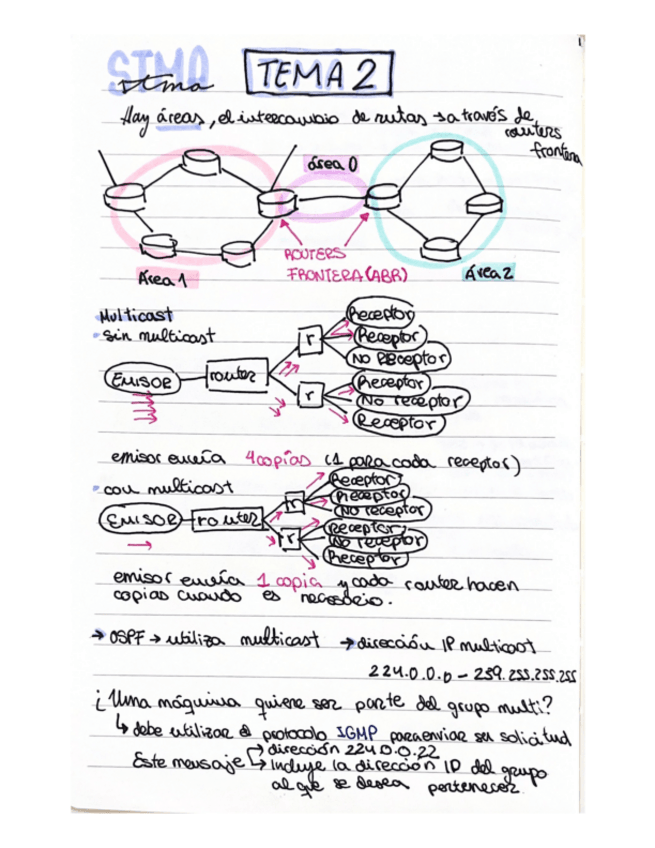 1
STMA TEMA 2
stma
Hay áreas, el intercambio de rutas → a través de
routers
frontera
área 0
ROUTERS
FRONTERA (ABR)
Área 1
Área 2
Multicast
• sin multicast
EMISOR
router
r
r
Receptor
Receptor
NO RECeptor
Receptor
No receptor
Receptor
emisor envía 4 copias (1 para cada receptor)
• con multicast
EMISOR
router
r
r
Receptor
Receptor
No receptor
Receptor
No receptor
Receptor
emisor envía 1 copia y cada router hacen
copias cuando es necesario.
→ OSPF → utiliza multicast → dirección IP multicast
224.0.0.0 - 239.255.255.255
¿Una máquina quiere ser parte del grupo multi?
↳ debe utilizar el protocolo IGMP para enviar su solicitud
Este mensaje → dirección 224.0.0.22
↳ Incluye la dirección IP del grupo
al que se desea pertenecer.